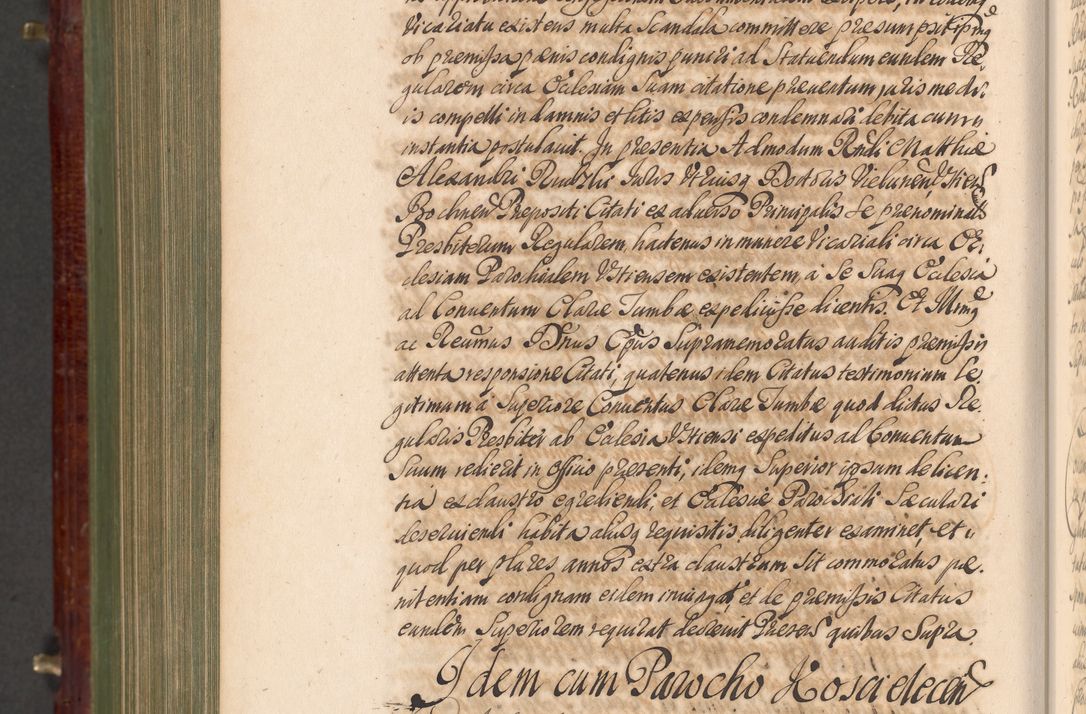 Vicariatu existens multa Scandala committere presumpsit ipmq
ob præmissa pænis condignis puniri ad Statuendum eundem Re,
gularem circa Ecclesiam Suam citatione preventum juris medi,
is compelli in damnis et litis expensis condemnari debita cum
instantia postulavit. In presentia Admodum Rndi Matthiæ
Alexandri Juris Utriusq Doctoris
Præpositi Citati ex adverso Principalis Se prenominatū
Presbiterum Regularem, hactenus in munere Vicariali circa Ec,
clesiam Parochialem Ustiensem existentem, a Se Suaq Ecclesia
ad Conventum Claræ Tumbæ expedivisse dicentis. Et
ac Reumus Dnus Supramemoratus auditis præmissis
attenta responsione Citati, quatenus idem Citatus testimonium Le,
gitimum a Superiore Conventus Claræ Tumbæ quod dictus Re,
gularis Presbiter ab Ecclesia Ustiensi expeditus ad Conventum
Suum redierit in officio presenti, idemq Superior ipsum de licen,
tia ex claustro egrediendi, et Ecclesiæ Parochiali Sæculari
deserviendi habita aliisq requisitis diligenter examinet, et
quod per plures annos extra claustrum Sit commoratus pæ,
nitentiam condignam eidem iniungat, et de præmissis Citatus
eundem Superiorem requirat decrevit Præsen quibus Supra
Idem cum Parocho Koscielecen